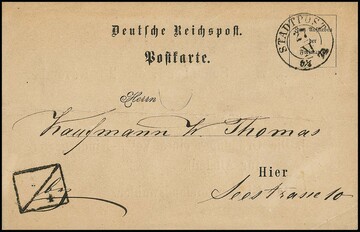 Deutsche Reichspost.
Postkarte.
STADTPOST
27
Herrn
Kaufmann W. Thomas
Hier
Seestrasse 10